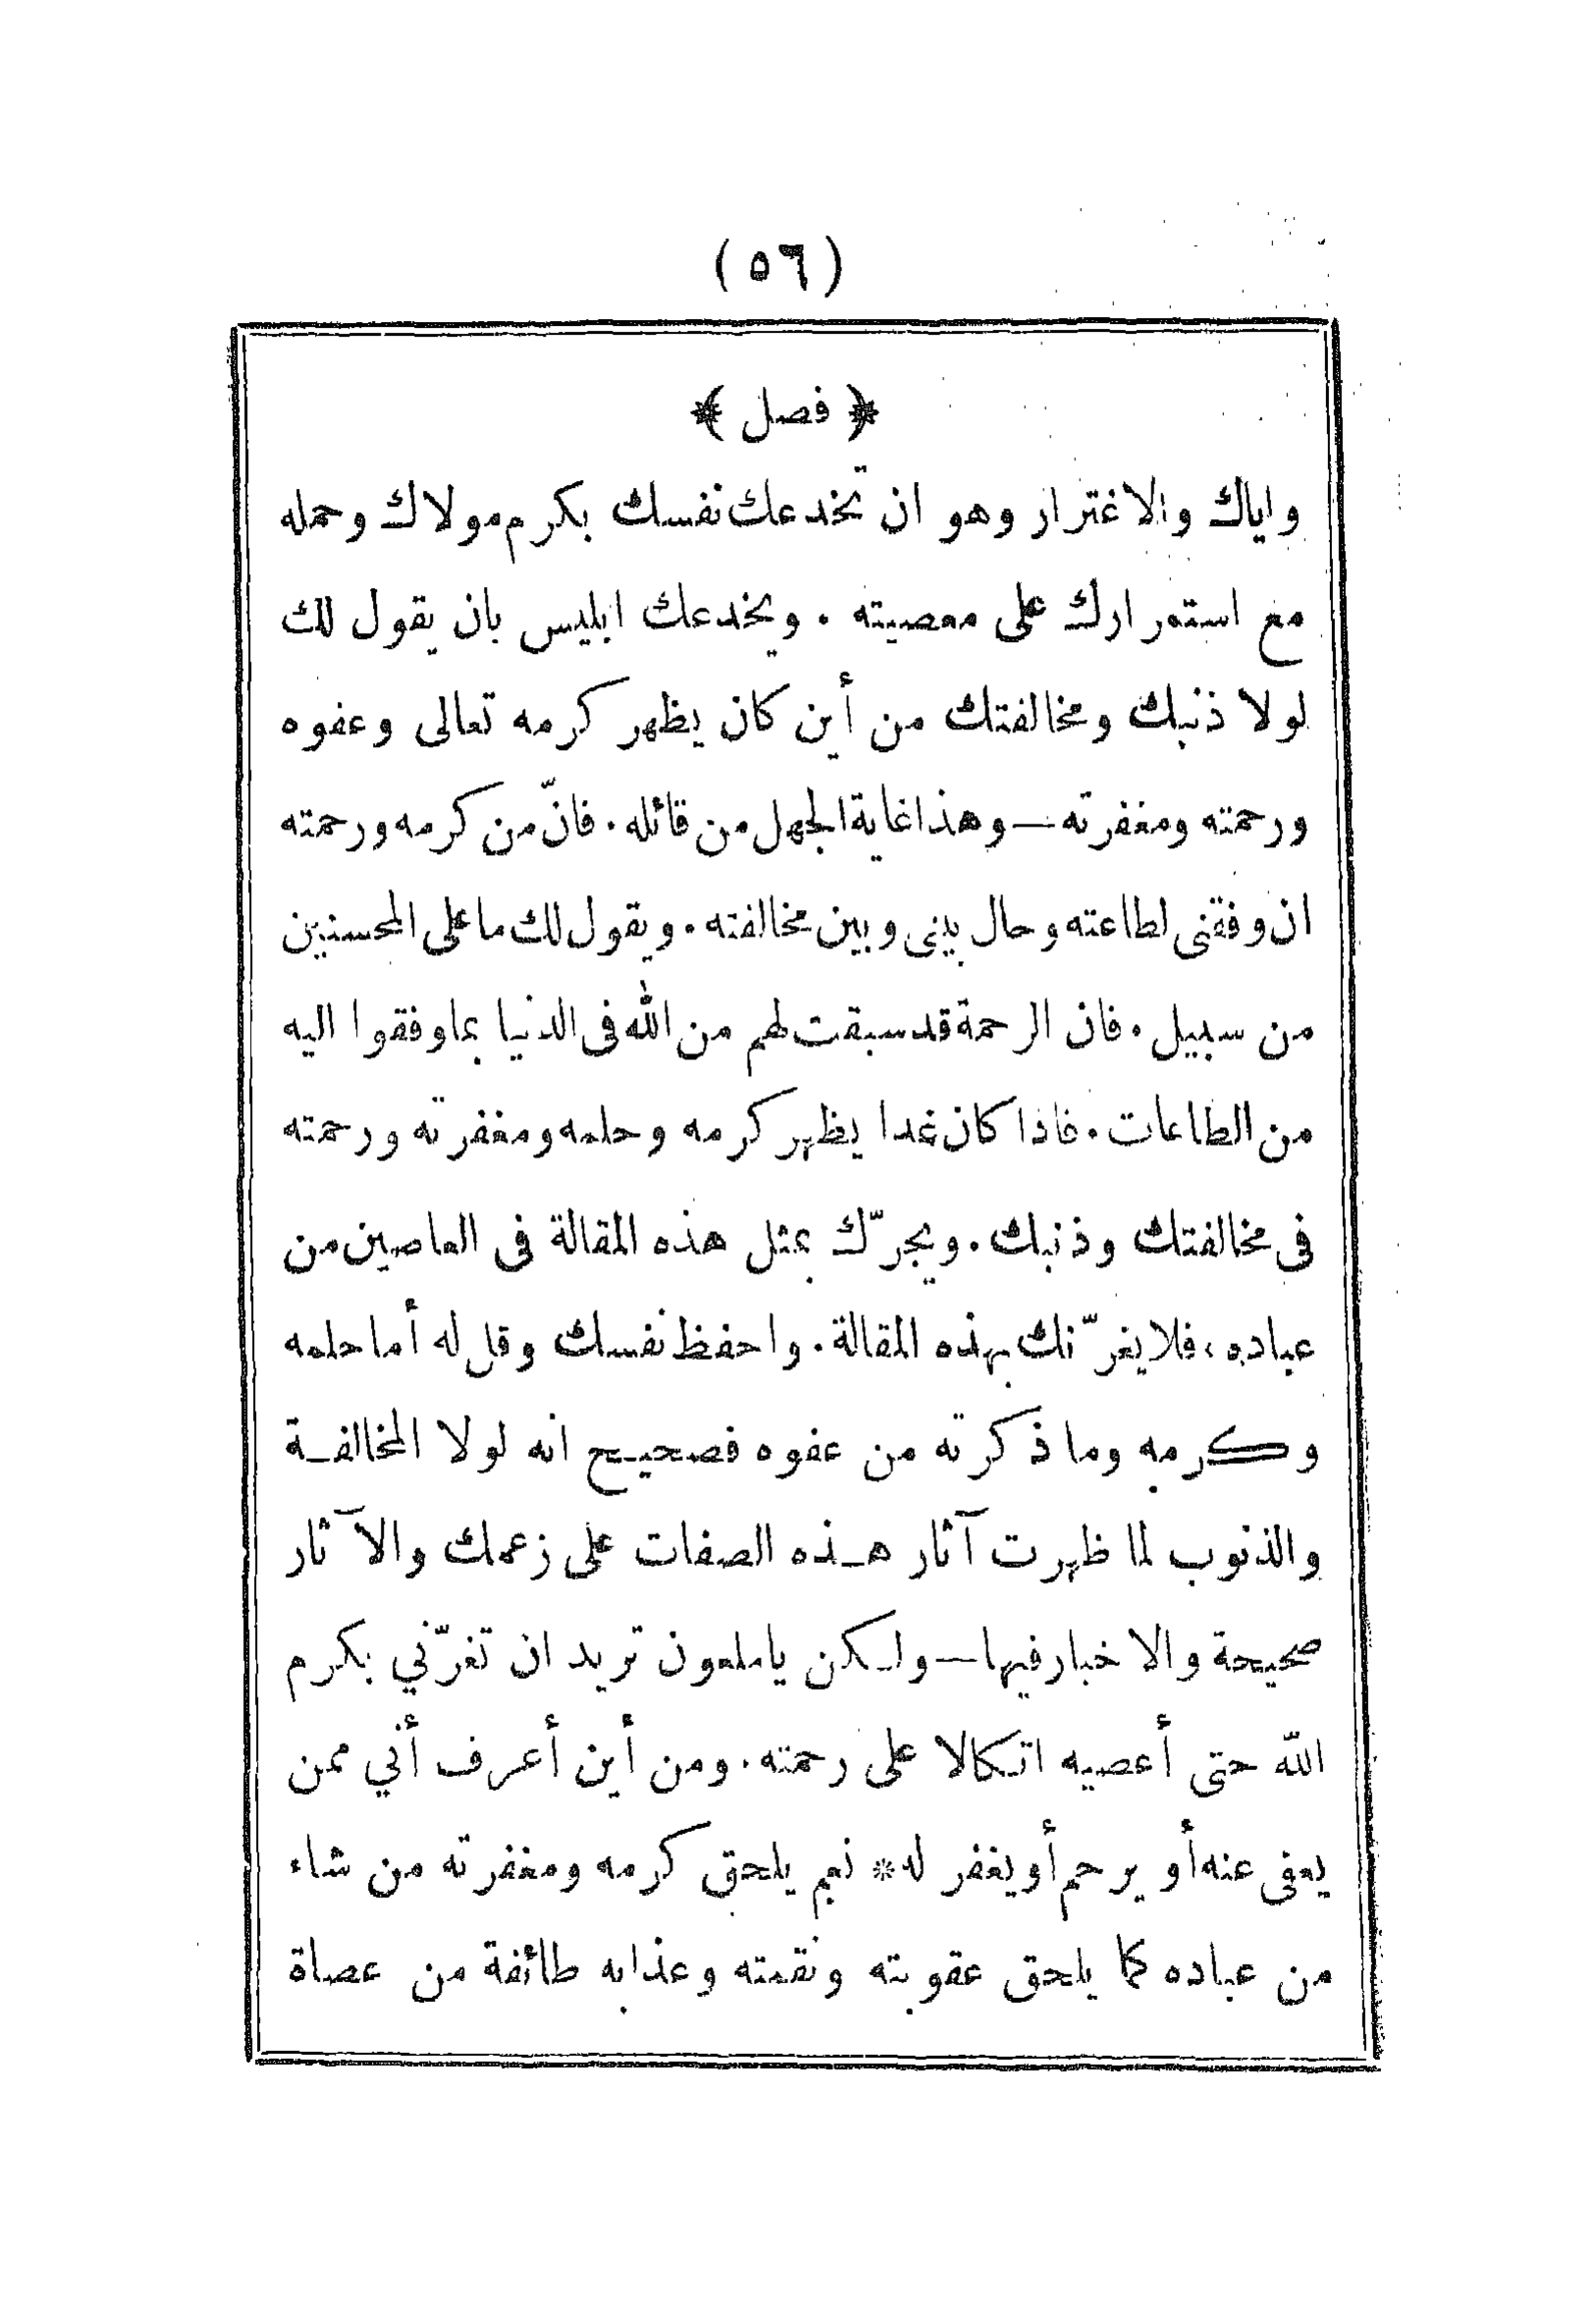 (٥٦)
﴿ فصل ﴾
واياك والاغترار وهو ان تخدعك نفسك بكرم مولاك وحمله
مع استمرارك على معصيته . ويخدعك ابليس بان يقول لك
لولا ذنبك ومخالفتك من أين كان يظهر كرمه تعالى وعفوه
ورحمته ومغفرته — وهذا غاية الجهل من قائله . فانّ من كرمه ورحمته
ان وفقنى لطاعته وحال بينى وبين مخالفته . ويقول لك ما على المحسنين
من سبيل . فان الرحمة قد سبقت لهم من الله فى الدنيا بما وفقوا اليه
من الطاعات . فاذا كان غدا يظهر كرمه وحلمه ومغفرته ورحمته
فى مخالفتك وذنبك . ويجرّك بمثل هذه المقالة فى العاصين من
عباده ، فلا يغرّنك بهذه المقالة . واحفظ نفسك وقل له أما حلمه
وكرمه وما ذكرته من عفوه فصحيح انه لولا المخالفة
والذنوب لما ظهرت آثار هذه الصفات على زعمك والآثار
صحيحة والاخبار فيها — ولكن ياملعون تريد ان تغرّني بكرم
اللّه حتى أعصيه اتكالا على رحمته . ومن أين أعرف أني ممن
يعفى عنه أو يرحم أو يغفر له * نعم يلحق كرمه ومغفرته من شاء
من عباده كما يلحق عقوبته ونقمته وعذابه طائفة من عصاة